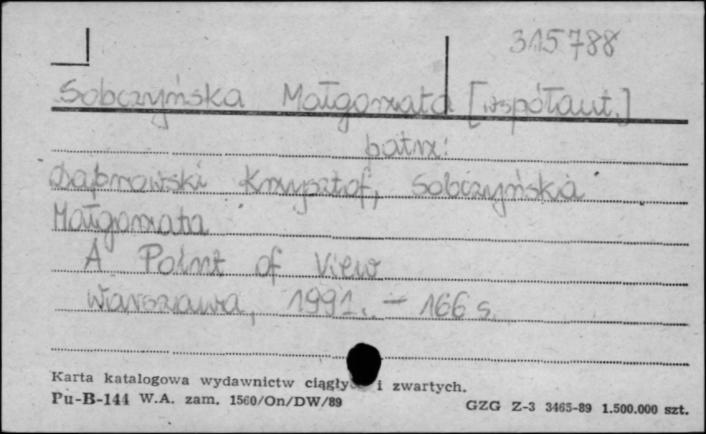 315788
Sobczyńska Małgorzata [współaut.]
patrz:
Dąbrowski Krzysztof, Sobczyńska
Małgorzata
A Point of View
Warszawa, 1991. – 166 s.
Karta katalogowa wydawnictw ciągłyc i zwartych.
Pu-B-144 W.A. zam. 1560/On/DW/89
GZG Z-3 3465-89 1.500.000 szt.